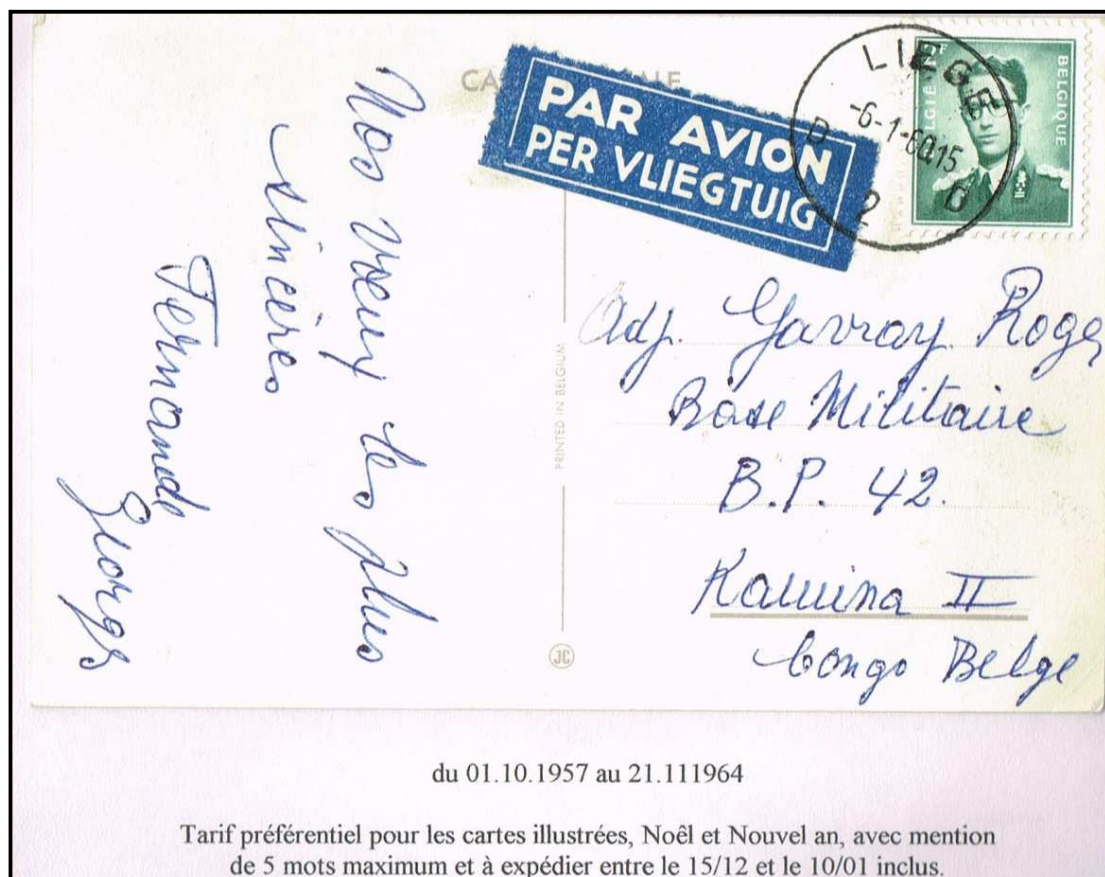 Nos vœux les plus
sincères
Fernande
Georgs
PAR AVION
PER VLIEGTUIG
LIEGE
-6-1-60.15
D 2 D
BELGIQUE
PRINTED IN BELGIUM
JC
Adj. Gavray Roger
Base Militaire
B.P. 42.
Kamina II
Congo Belge
du 01.10.1957 au 21.111964
Tarif préférentiel pour les cartes illustrées, Noêl et Nouvel an, avec mention
de 5 mots maximum et à expédier entre le 15/12 et le 10/01 inclus.